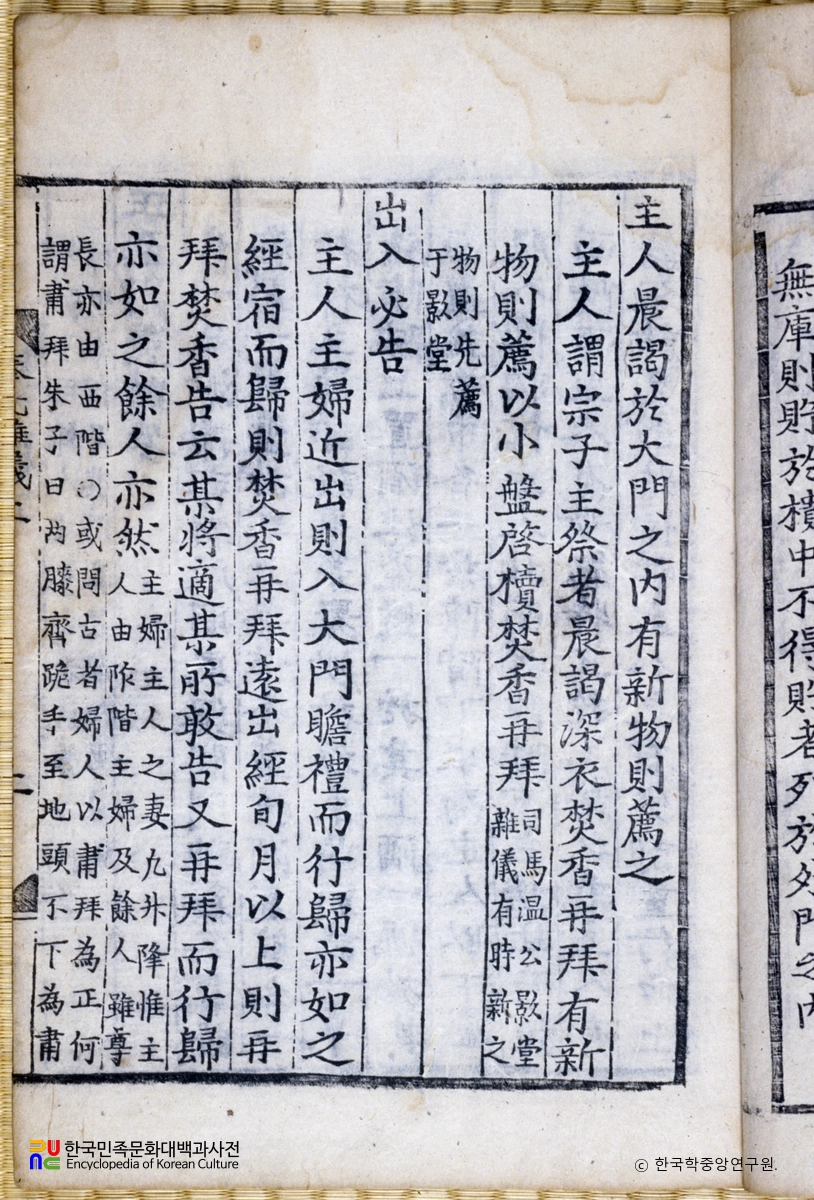 無庫則貯於樻中不得貯者列於外門之內
主人晨謁於大門之内有新物則薦之
主人謂宗子主祭者晨謁深衣焚香再拜有新
物則薦以小盤啓櫝焚香再拜司馬温公影堂
雜儀有時新之
物則先薦
于影堂
出入必告
主人主婦近出則入大門瞻禮而行歸亦如之
經宿而歸則焚香再拜遠出經旬月以上則再
拜焚香告云某將適某所敢告又再拜而行歸
亦如之餘人亦然主婦主人之妻凡升降惟主
人由阼階主婦及餘人雖尊
長亦由西階○或問古者婦人以肅拜為正何
謂肅拜朱子曰两膝齊跪手至地頭不下為肅
한국민족문화대백과사전
Encyclopedia of Korean Culture
ⓒ 한국학중앙연구원.